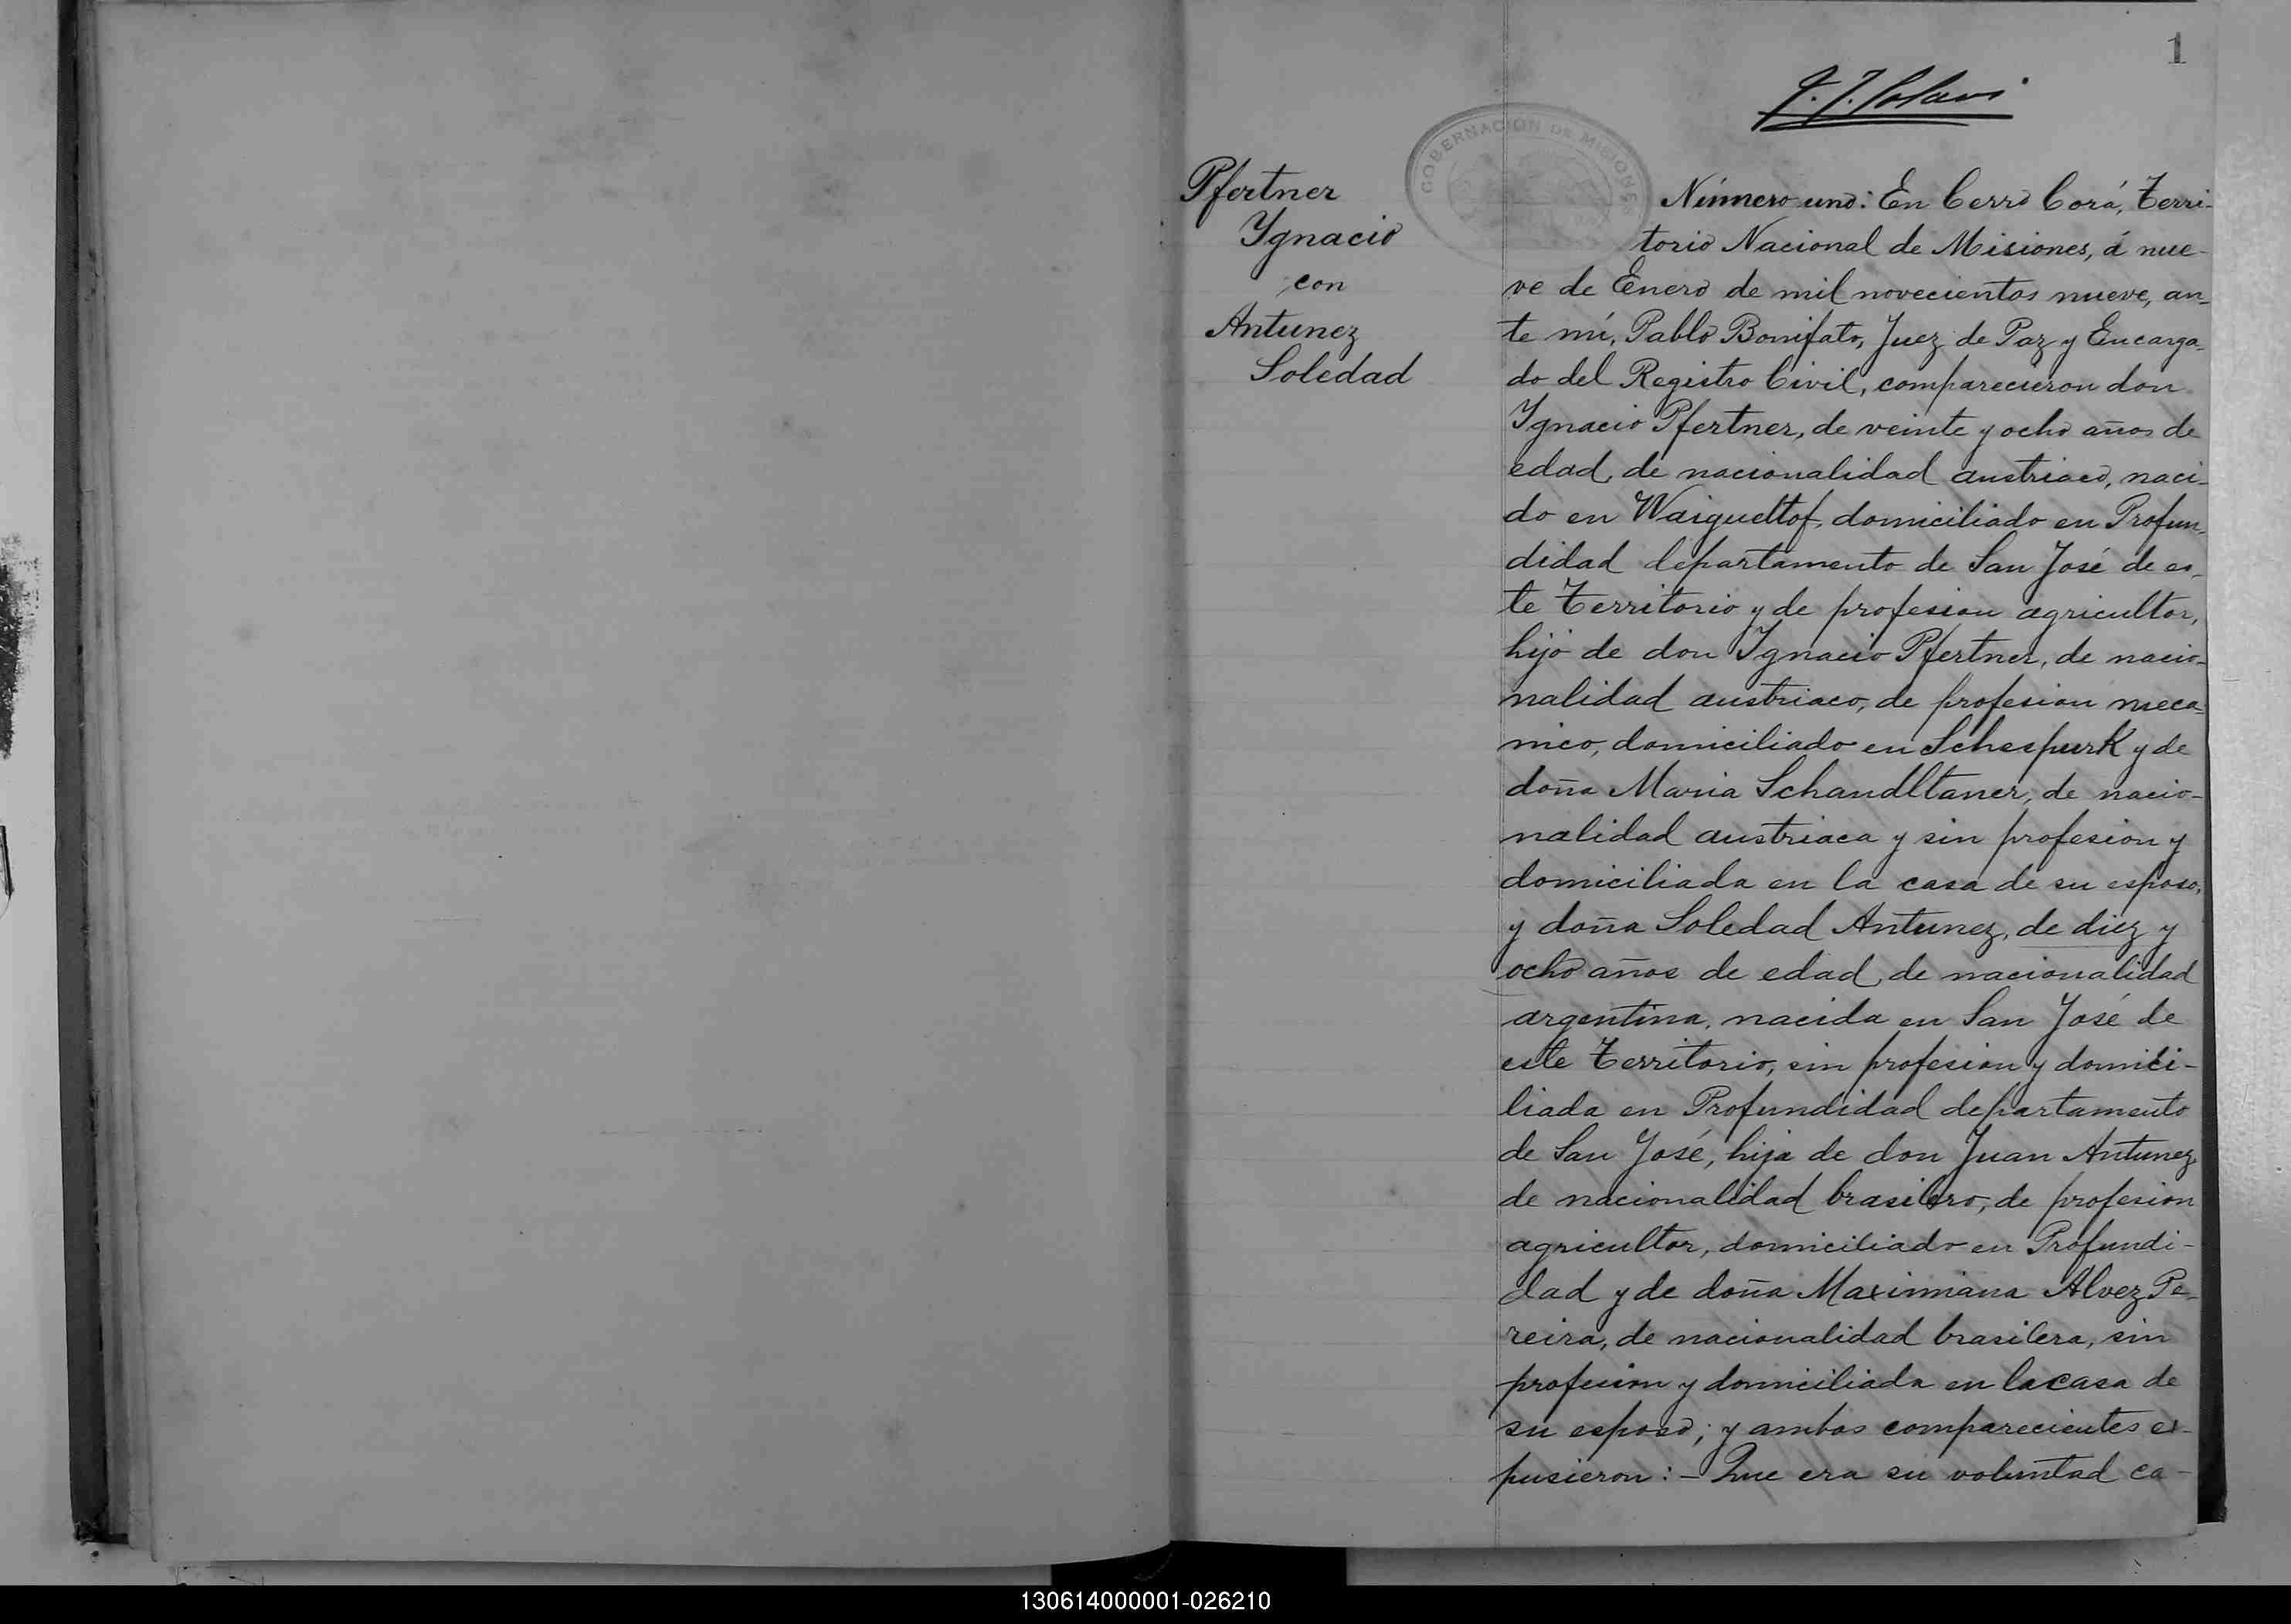 1
GOBERNACION DE MISIONES
Pfertner
Ygnacio
con
Antunez
Soledad
Número uno: En Cerro Corá, Terri-
torio Nacional de Misiones, á nue-
ve de Enero de mil novecientos nueve, an-
te mí, Pablo Bonifato, Juez de Paz y Encarga-
do del Registro Civil, comparecieron don
Ygnacio Pfertner, de veinte y ocho años de
edad, de nacionalidad austriaco, naci-
do en Waiguettof, domiciliado en Profun-
didad departamento de San José de es-
te Territorio y de profesion agricultor,
hijo de don Ygnacio Pfertner, de nacio-
nalidad austriaco, de profesion meca-
nico, domiciliado en Schespurk y de
doña Maria Schandltaner, de nacio-
nalidad austriaca y sin profesion y
domiciliada en la casa de su esposo,
y doña Soledad Antunez, de diez y
ocho años de edad, de nacionalidad
argentina, nacida en San José de
este Territorio, sin profesion y domici-
liada en Profundidad departamento
de San José, hija de don Juan Antunez,
de nacionalidad brasilero, de profesion
agricultor, domiciliado en Profundi-
dad y de doña Maximiana Alvez Pe-
reira, de nacionalidad brasilera, sin
profesion y domiciliada en la casa de
su esposo; y ambos comparecientes ex-
pusieron: - Que era su voluntad ca-
130614000001-026210